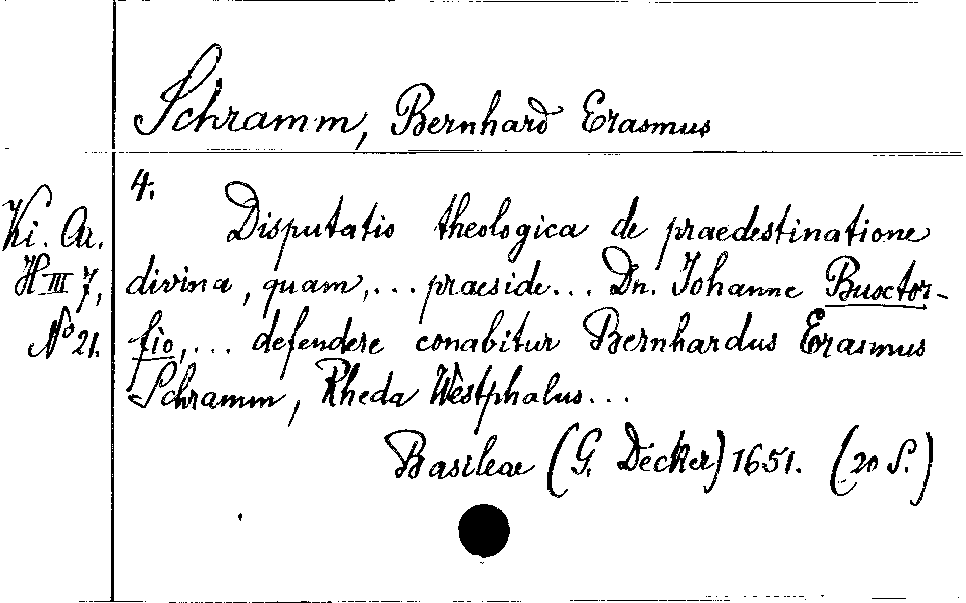 Schramm, Bernhard Erasmus
4.
Ki. Ar.
H III 7,
No 21.
Disputatio theologica de praedestinatione
divina, quam,... praeside... Dn. Johanne Buxtor-
fio,... defendere conabitur Bernhardus Erasmus
Schramm, Rheda Westphalus...
Basileae (G. Decker) 1651. (20 S.)